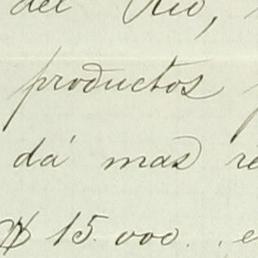 del Rio,
productos
dá mas re
$ 15.000. e